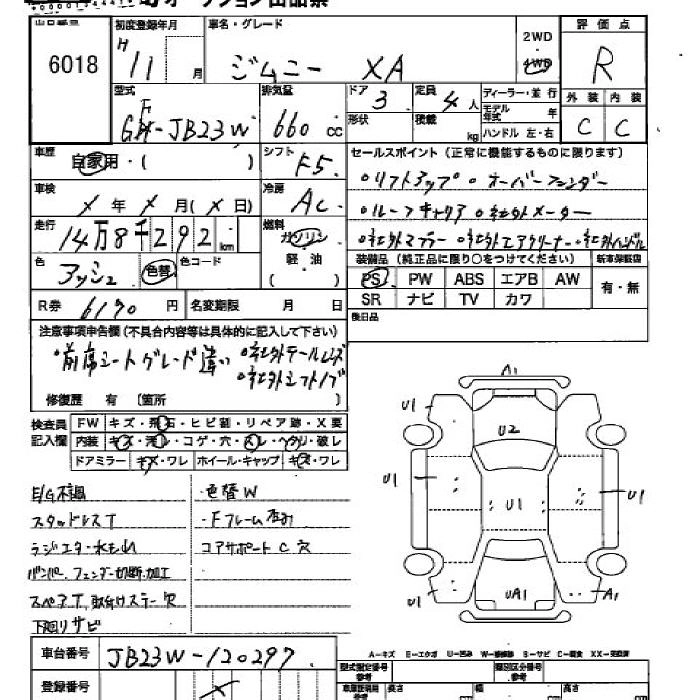 オークション出品票
6018
初度登録年月
H 11 月
車名・グレード
ジムニー XA
2WD
4WD
評価点
R
外装 内装
C C
型式
GF-JB23W
排気量
660 cc
ドア
3
形状
定員
4人
積載
kg
ディーラー・並行
モデル年式 年
ハンドル 左・右
車歴
自家用・( )
シフト
F5
セールスポイント(正常に機能するものに限ります)
・リフトアップ ・オーバーフェンダー
・ルーフキャリア ・社外メーター
・社外マフラー ・社外エアクリーナー ・社外ハンドル
車検
× 年 × 月(×日)
冷房
AC
走行
14万8千292km
燃料
ガソリン
軽・油
( )
色
アッシュ
色替
色コード
装備品(純正品に限り○をつけてください)
新車保証書
PS PW ABS エアB AW
SR ナビ TV カワ
有・無
後日品
R券 6170 円
名変期限 月 日
注意事項申告欄(不具合内容等は具体的に記入して下さい)
・前席シートグレード違い ・社外テールレンズ
・社外シフトノブ
修復歴 有 〔箇所 〕
検査員記入欄
FW キズ・飛石・ヒビ割・リペア跡・X要
内装 キズ・汚レ・コゲ・穴・スレ・ヘタリ・破レ
ドアミラー キズ・ワレ ホイール・キャップ キズ・ワレ
E/G不調
・色替W
スタッドレスT
・Fフレーム歪み
ラジエター水もれ
コアサポートC穴
バンパー、フェンダー切断、加工
スペアT、取付けステー欠
下廻りサビ
A1
U1
U1
U2
U1
U1
U1
UA1
A1
A-キズ E-エクボ U-凹み W-補修跡 S-サビ C-腐食 XX-交換済
車台番号
JB23W-120297
登録番号
×
型式指定番号
参考
類別区分番号
参考
長さ
幅
高さ